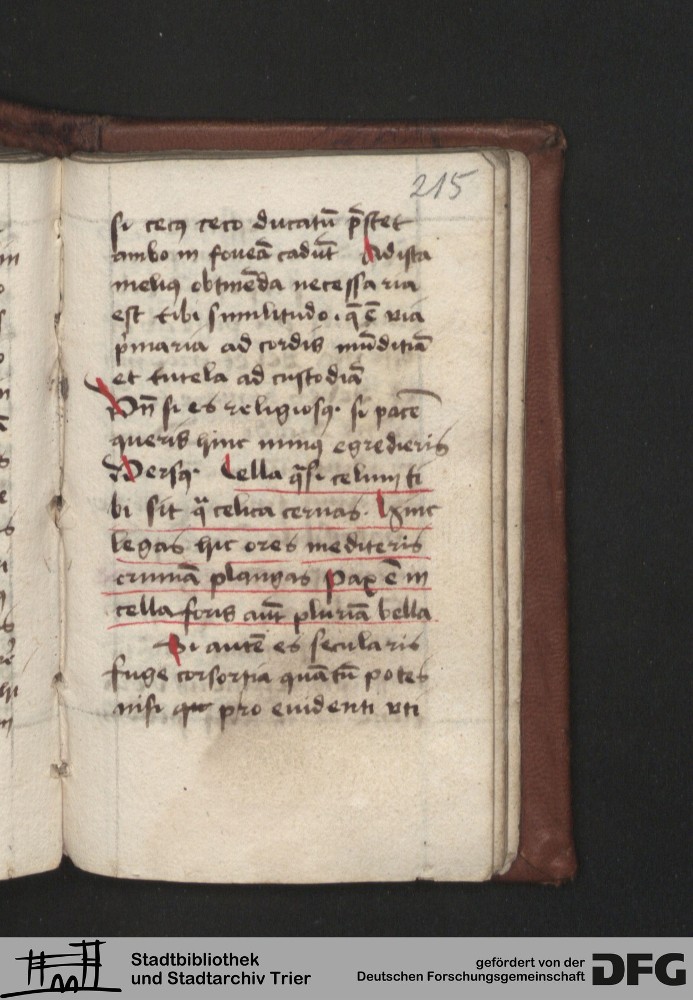 215
si cecꝰ ceco ducatū p̄stet
ambo in foveā cadūt Ad ista
meliꝰ obtinēda necessaria
est tibi similitudo · q̄ ē via
p̄maria ad cordis mūditiā
et tutela ad custodiā
Vn̄ si es religiosꝰ si pacē
queris hinc minꝰ egredieris
Versꝰ Cella q̄si celum ti
bi sit q̄ celica cernas · Hinc
legas hic ores mediteris
crimīa plangas Pax ē in
cella foris aūt plurīa bella
Si autē es secularis
fuge corsortia quātū potes
nisi pro evidenti uti
Stadtbibliothek
und Stadtarchiv Trier
gefördert von der
Deutschen Forschungsgemeinschaft
DFG